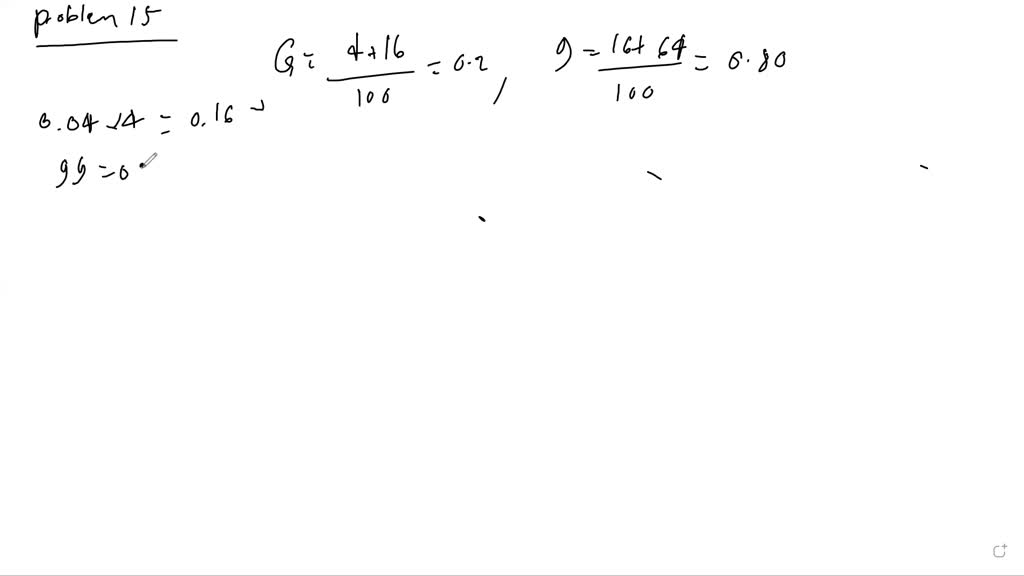 problem 15
G = 4+16 / 100 = 0.2 , g = 16+64 / 100 = 0.80
0.04 x 4 = 0.16
gg = 0